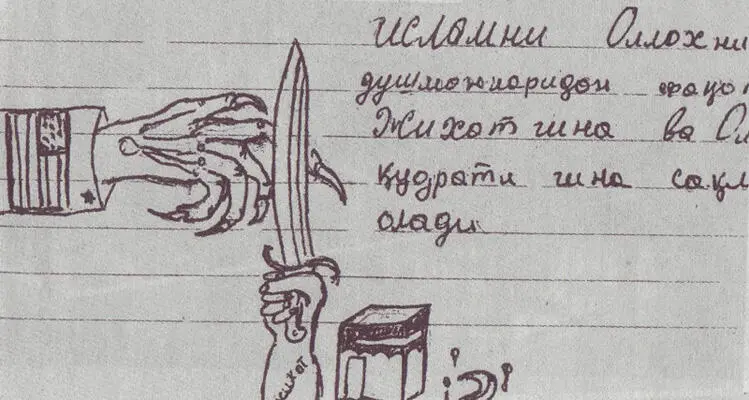 ИСЛАМНИ Оллохни
душманларидан фақат
Жихат гина ва Ол
қудрати гина сақл
олади
жихат